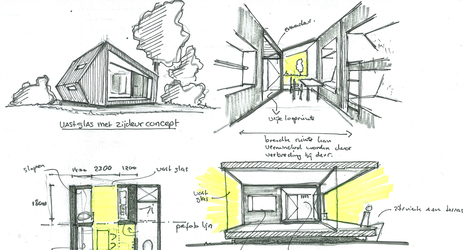 vast glas met zijdeur concept
vrije loopruimte
breedte ruimte kan
verminderd worden door
verbreding bij deur.
slapen
2200
1200
vast glas
1800
prefab lijn
vast
glas